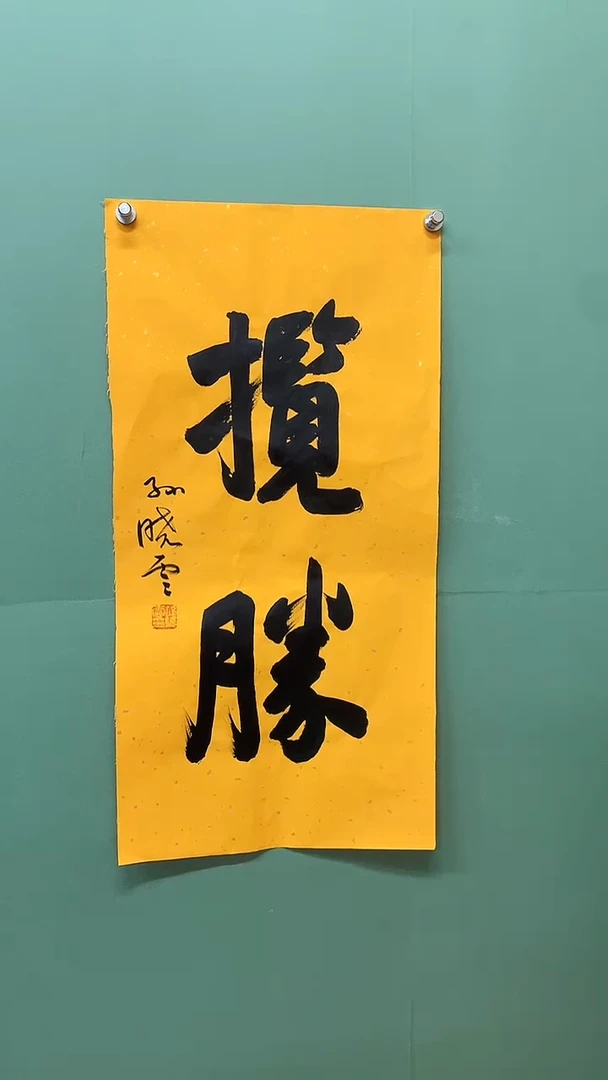 攬勝
孙晓云